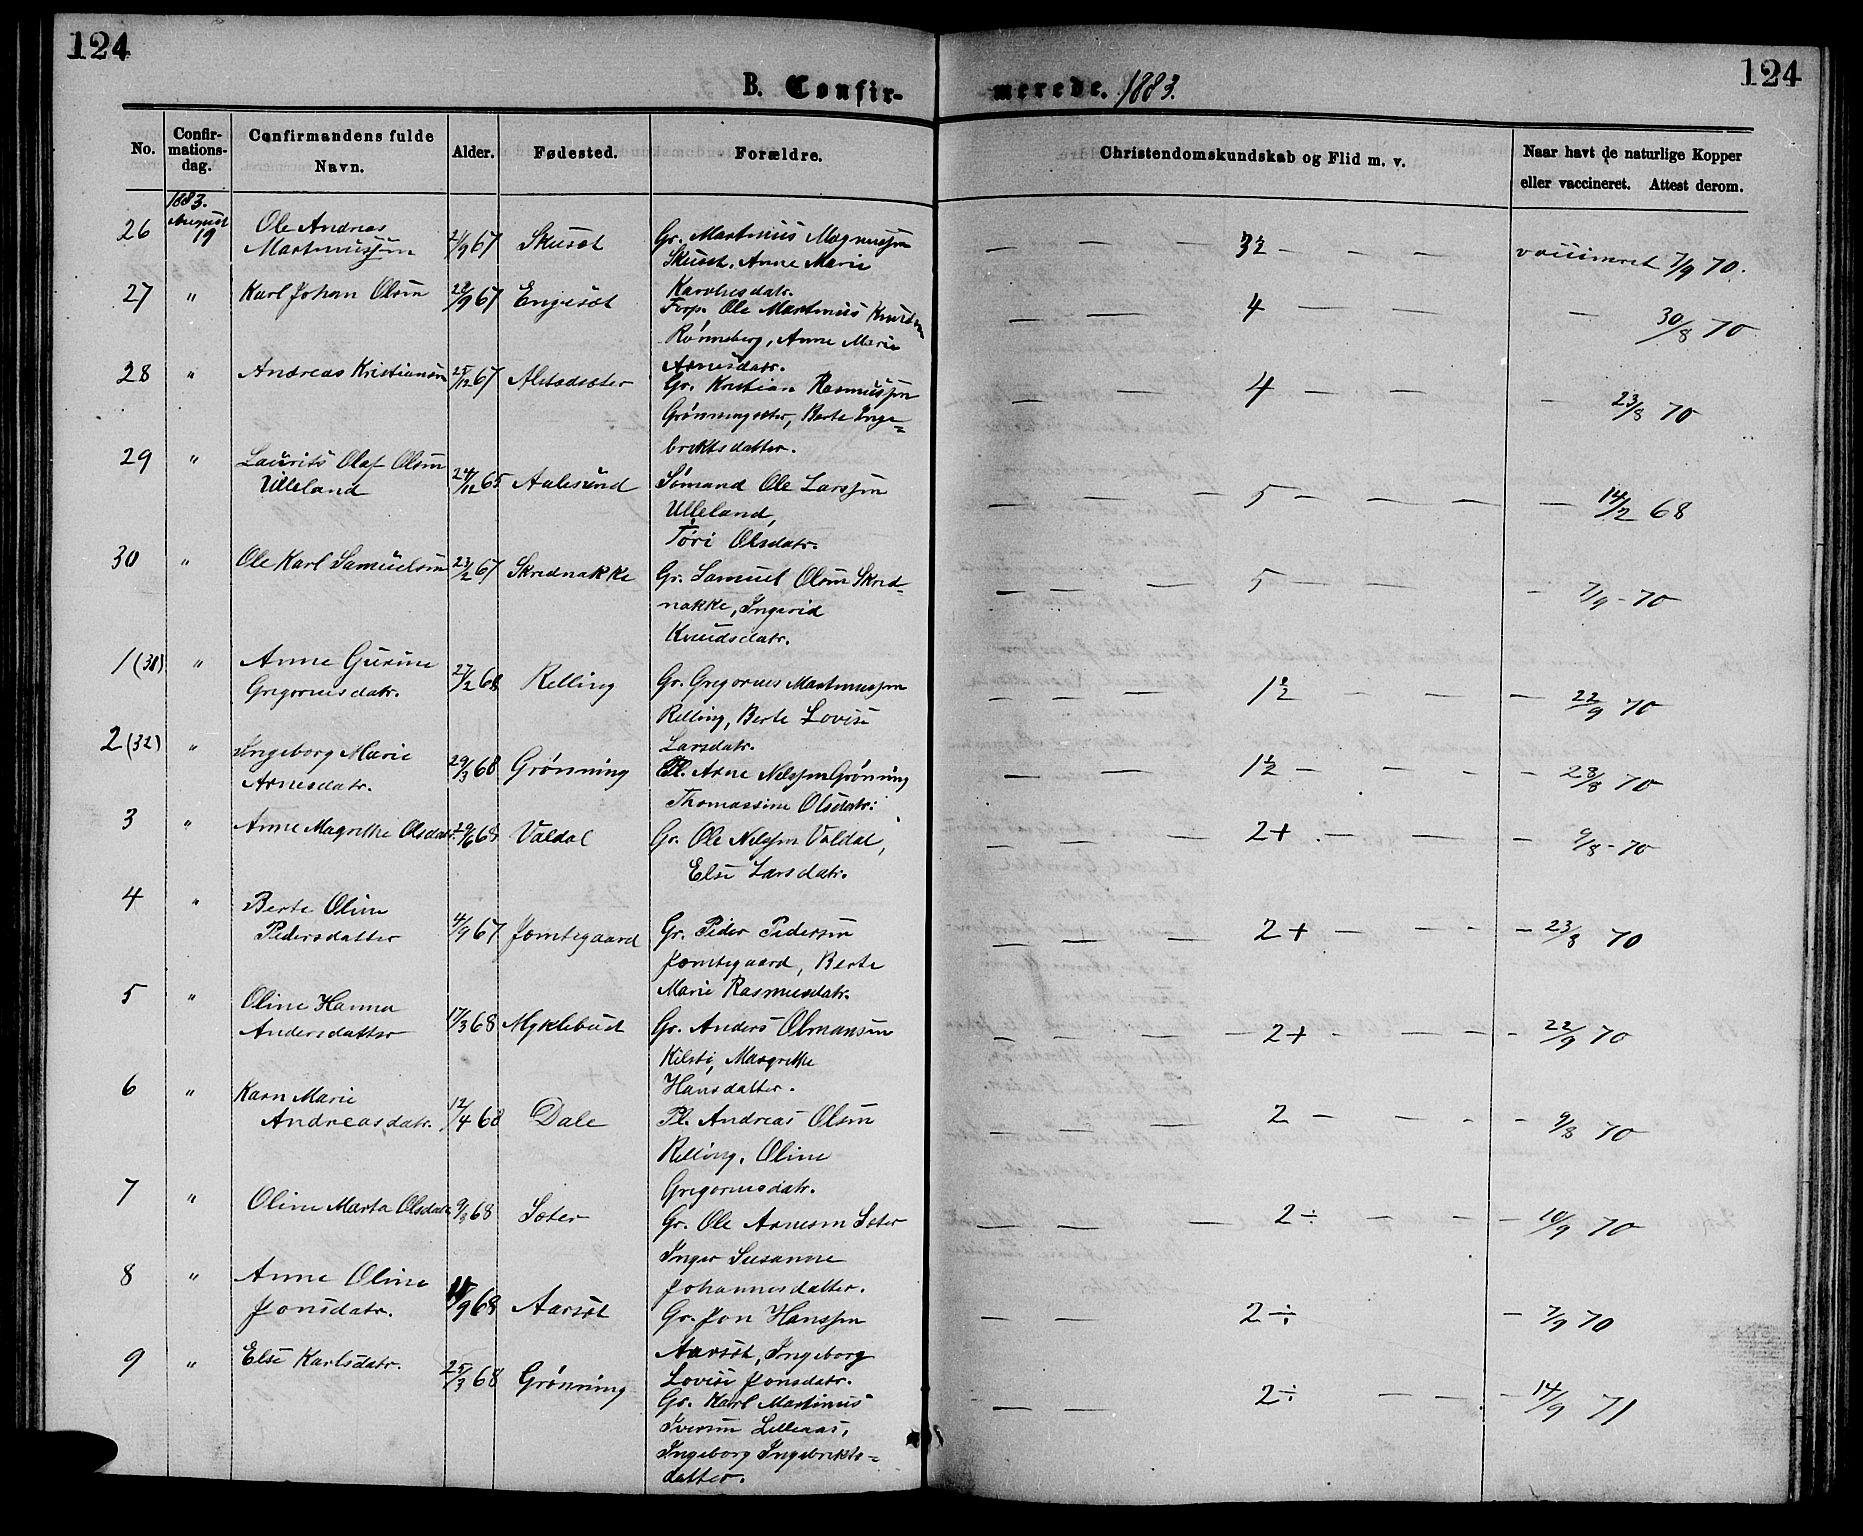 124
124
B. Confir-
merede. 1883.
No.
Confir-
mations-
dag.
Confirmandens fulde
Navn.
Alder.
Fødested.
Forældre.
Christendomskundskab og Flid m. v.
Naar havt de naturlige Kopper
eller vaccineret. Attest derom.
1883.
August
26 19 Ole Andreas
Martinussøn 21/9 67 Skusøt Gr. Martinus Magnussøn
Skusøt, Anne Marie
— — — 3½ — — — — vaccineret 7/9 70.
27 " Karl Johan Olsøn 28/9 67 Engesæt
Forp. Ole Martinus Knutsen
Rønneberg, Anne Marie
Arnesdatr.
— — 4 — — — — 30/8 70
28 " Andreas Kristiansøn 25/12 67 Alstadsæter
Gr. Kristian Rasmussøn
Grønningsæter, Berte Inge=
briktsdatter.
— — 4 — — — — 23/8 70
29 " Laurits Olaf Olsøn
Ulleland 24/12 65 Aalesund Sømand Ole Larssøn
Ulleland,
Tøri Olsdatr.
— — — 5 — — — — — 14/2 68
30 " Ole Karl Samuelsøn 23/2 67 Skrednakke Gr. Samuel Olsøn Skred=
nakke, Ingerid
Knudsdatr.
— — — 5 — — — 7/9 - 70
1 (31) " Anne Gurine
Gregoriusdatr. 27/2 68 Relling Gr. Gregorius Martinussøn
Relling, Berte Lovise
Larsdatr.
— — — 1½ — — — — 22/9 70
2 (32) " Ingeborg Marie
Arnesdatr. 29/3 68 Grønning Pl. Arne Nilssøn Grønning
Thomassine Olsdatr.
— — 1½ — — — — — 23/8 70
3 " Anne Magrethe Olsdatr. 29/6 68 Valdal Gr. Ole Nilssøn Valdal,
Else Larsdatr.
— — 2+ — — — — 9/8 - 70
4 " Berte Oline
Pedersdatter 4/9 67 Jomtegaard Gr. Peder Pedersøn
Jomtegaard, Berte
Marie Rasmusdatr.
— — — 2+ — — — — — 23/8 70
5 " Oline Hanna
Andersdatter 17/3 68 Myklebust Gr. Anders Olmansøn
Kilsti, Margrethe
Hansdatter.
— — — — 2+ — — — — — 22/9 70
6 " Karn Marie
Andreasdatr. 12/4 68 Dale Pl. Andreas Olsøn
Relling, Oline
Gregoriusdatr.
— — — 2 — — — — 9/8 70
7 " Oline Marta Olsdatr 9/8 68 Sæter
Gr. Ole Arnesøn Sæter
Inger Susanne
Johannesdatter.
— — — 2÷ — — — — 10/9 70
8 " Anne Oline
Jonsdatr. 11/9 68 Aarsæt Gr. Jon Hanssøn
Aarsøt, Ingeborg
Lovise Jonsdatr.
— — 2÷ — 7/9 70
9 " Else Karlsdatr. 25/3 68 Grønning
Gr. Karl Martinus
Iversøn Lilleaas,
Ingeborg Ingebrikts=
datter.
— — 2÷ — — — 14/9 71